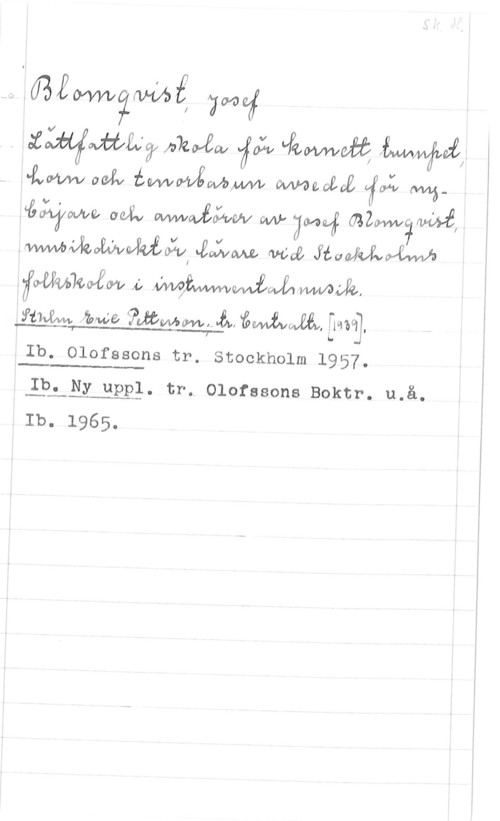 Sk. H.
Blomqvist, Josef
Lättfattlig skola för kornett, trumpet,
horn och tenorbasun avsedd för ny-
börjare och amatörer av Josef Blomqvist,
musikdirektör, lärare vid Stockholms
folkskolor i instrumentalmusik.
Sthlm, Eric Petterson, tr. Centraltr. [1939].
Ib. Olofssons tr. Stockholm 1957.
Ib. Ny uppl. tr. Olofssons Boktr. u.å.
Ib. 1965.